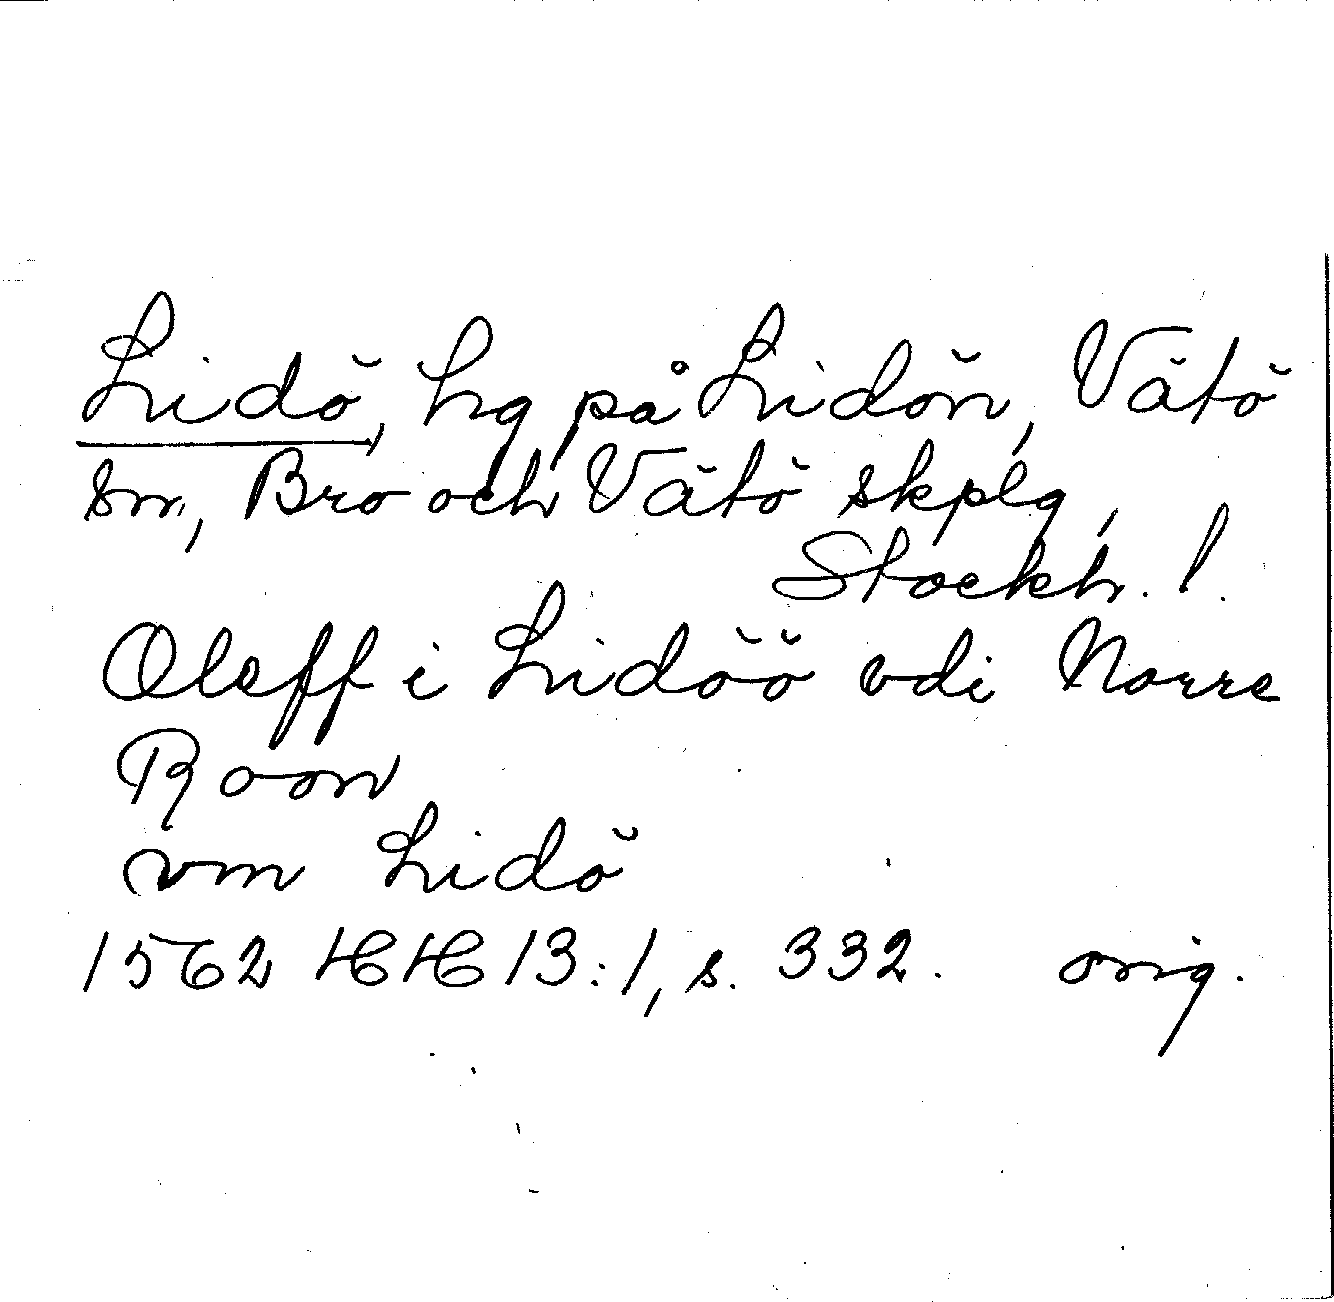 Lidö, hg på Lidön, Vätö
sn, Bro och Vätö skplg,
Stockh. l.
Oleff i Lidöö vdi Norre
Roon
vm Lidö
1562 HH 13:1, s. 332. orig.